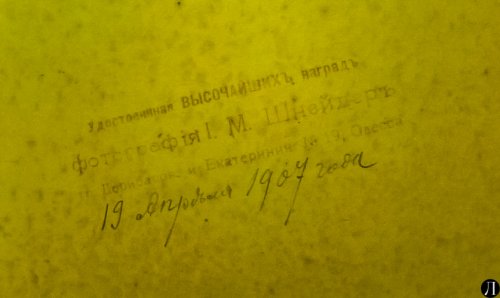 Удостоенная ВЫСОЧАЙШИХЪ наградъ
фотографія І. М. Шнейдеръ
Екатеринин. Одесса
19 Апрѣля 1907 года
Л